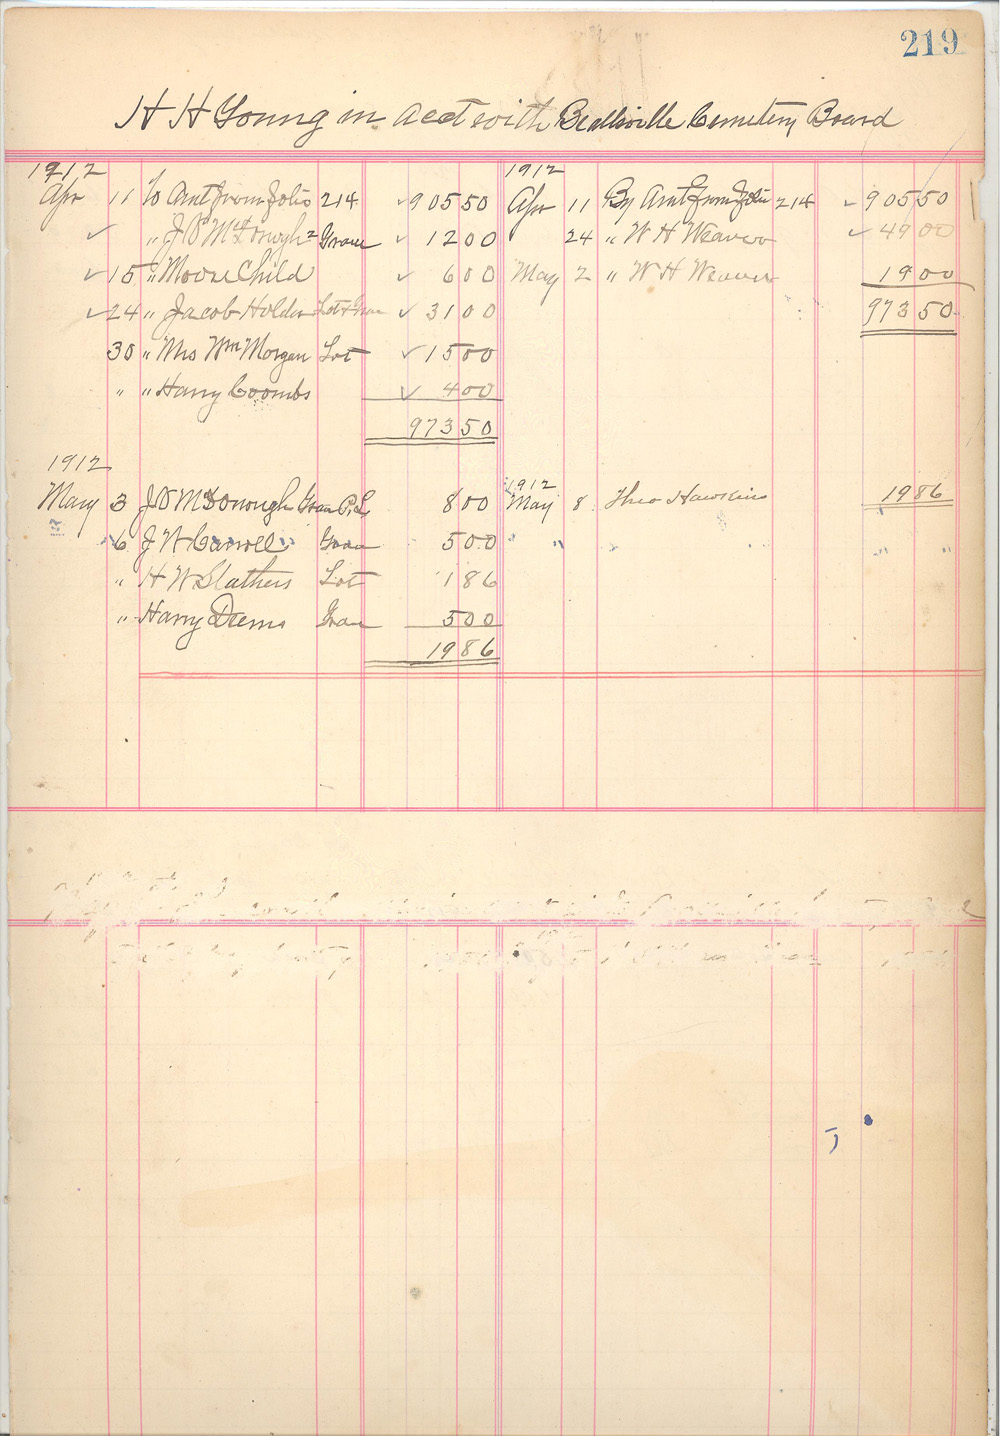 219
H H Young in acct with Beallsville Cemetery Board
1912
Apr 11 To Amt from folio 214 905 50
" J D McDonough 2 Grave 12 00
15 " Moore Child 6 00
24 " Jacob Holder Lot & Grave 31 00
30 " Mrs Wm Morgan Lot 15 00
" " Harry Coombs 4 00
973 50
1912
Apr 11 By Amt from folio 214 905 50
24 " W H Weaver 49 00
May 2 " W H Weaver 19 00
973 50
1912
May 3 J D McDonough Grave P.L. 8 00
6 J W Carroll Grave 5 00
" H W Slathers Lot 1 86
" Harry Deems Grave 5 00
19 86
1912
May 8 Theo Hawkins 19 86